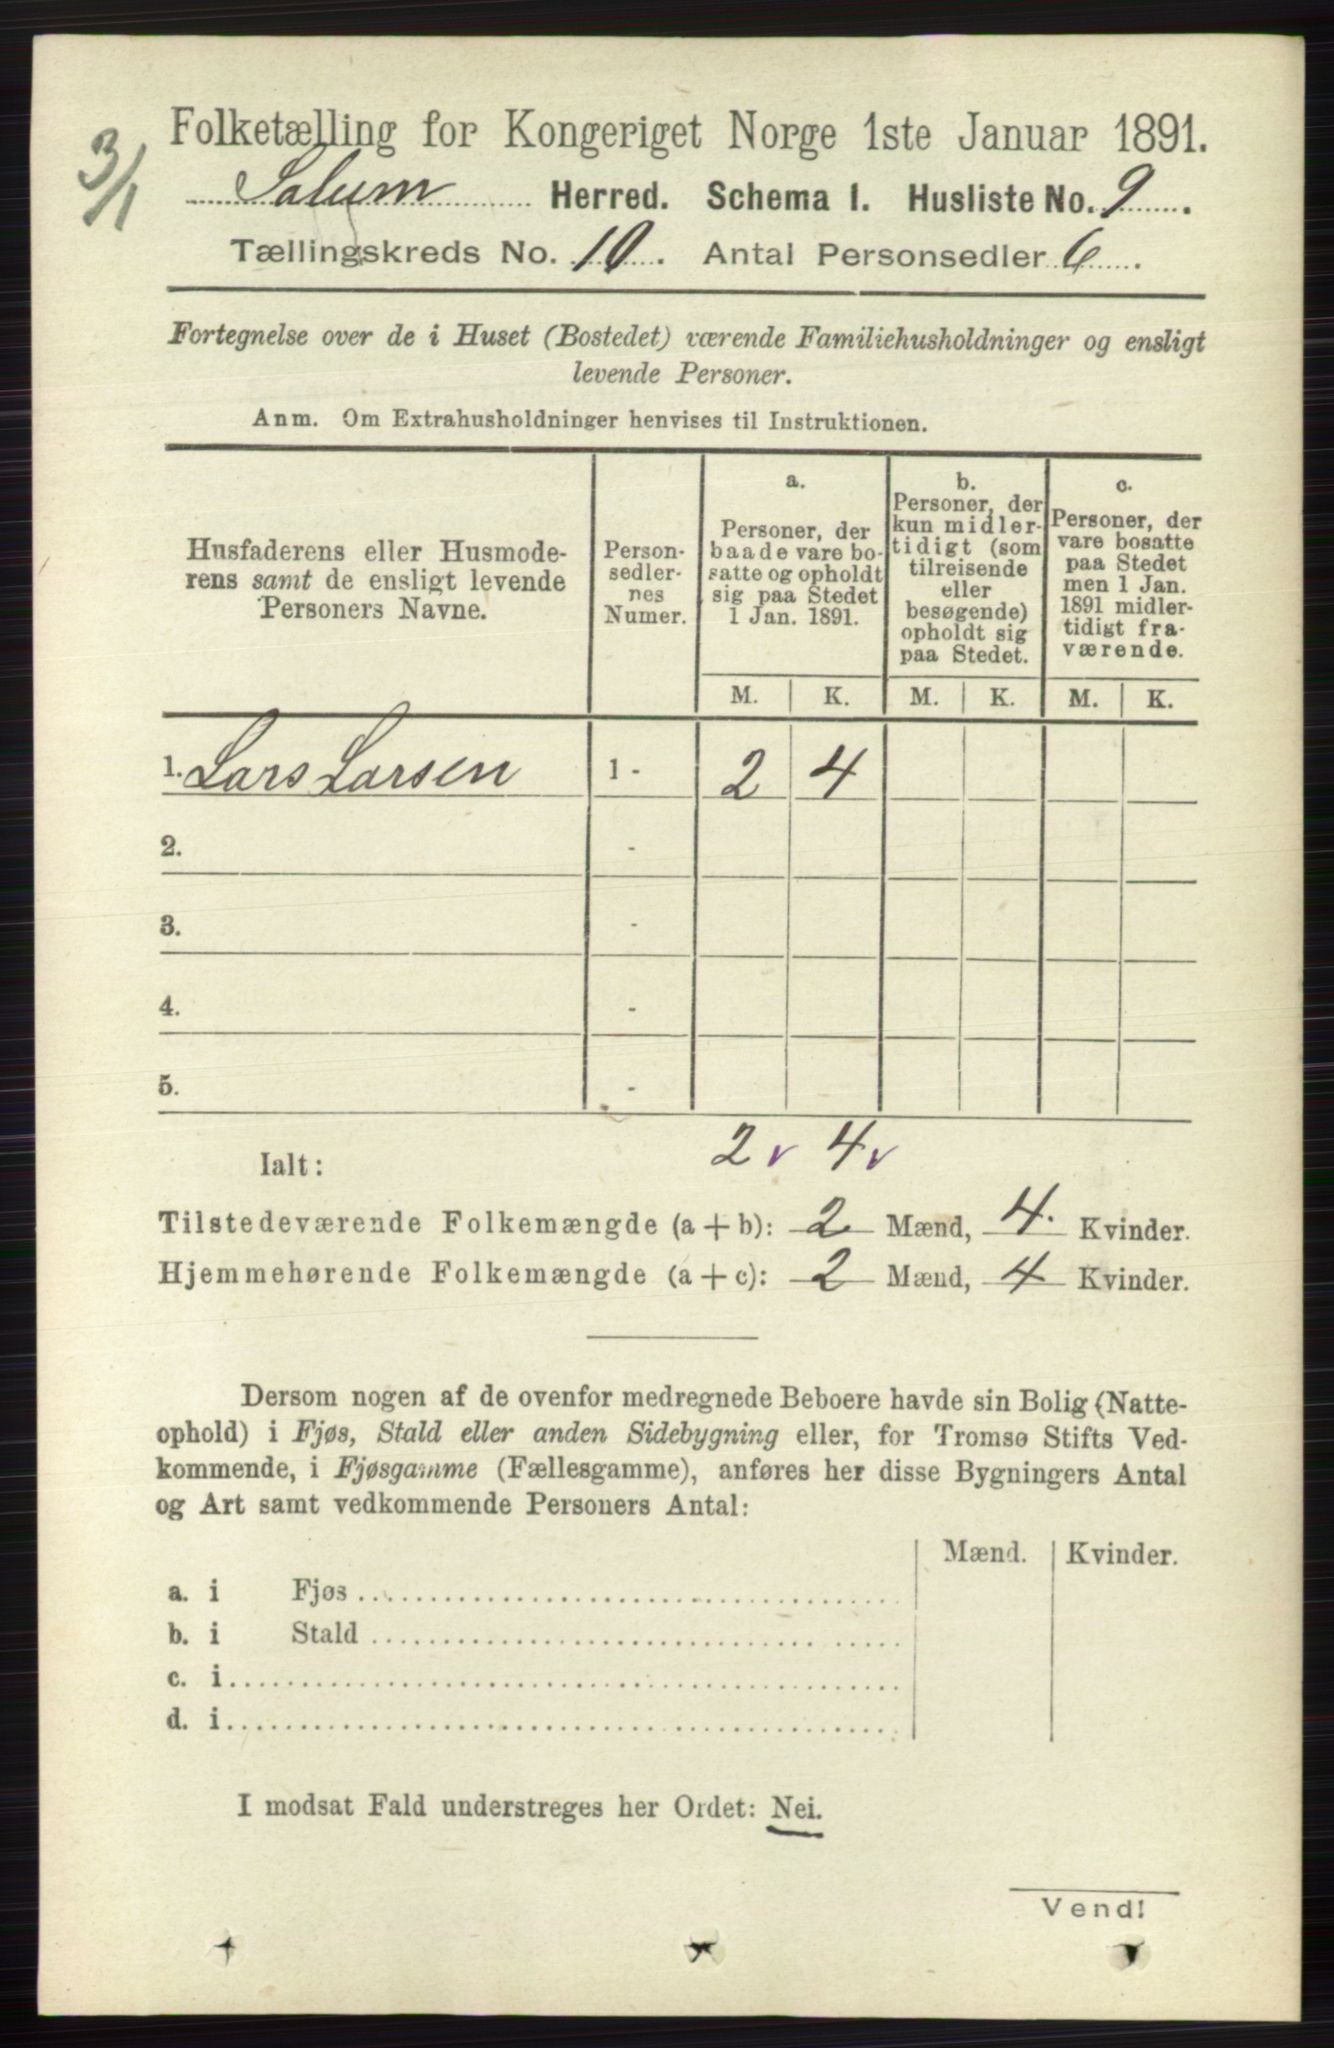 3/1
Folketælling for Kongeriget Norge 1ste Januar 1891.
Solum Herred. Schema I. Husliste No. 9.
Tællingskreds No. 10. Antal Personsedler 6.
Fortegnelse over de i Huset (Bostedet) værende Familiehusholdninger og ensligt
levende Personer.
Anm. Om Extrahusholdninger henvises til Instruktionen.
Husfaderens eller Husmode-
rens samt de ensligt levende
Personers Navne.
Person-
sedler-
nes
Numer.
a.
Personer, der
baade vare bo-
satte og opholdt
sig paa Stedet
1 Jan. 1891.
b.
Personer, der
kun midler-
tidigt (som
tilreisende
eller
besøgende)
opholdt sig
paa Stedet.
c.
Personer, der
vare bosatte
paa Stedet
men 1 Jan.
1891 midler-
tidigt fra-
værende.
M. K. M. K. M. K.
1. Lars Larsen 1 - 2 4
2. -
3. -
4. -
5. -
Ialt: 2 v 4 v
Tilstedeværende Folkemængde (a + b): 2 Mænd, 4. Kvinder.
Hjemmehørende Folkemængde (a + c): 2 Mænd, 4 Kvinder.
Dersom nogen af de ovenfor medregnede Beboere havde sin Bolig (Natte-
ophold) i Fjøs, Stald eller anden Sidebygning eller, for Tromsø Stifts Ved-
kommende, i Fjøsgamme (Fællesgamme), anføres her disse Bygningers Antal
og Art samt vedkommende Personers Antal:
Mænd. Kvinder.
a. i Fjøs
b. i Stald
c. i
d. i
I modsat Fald understreges her Ordet: Nei.
Vend!